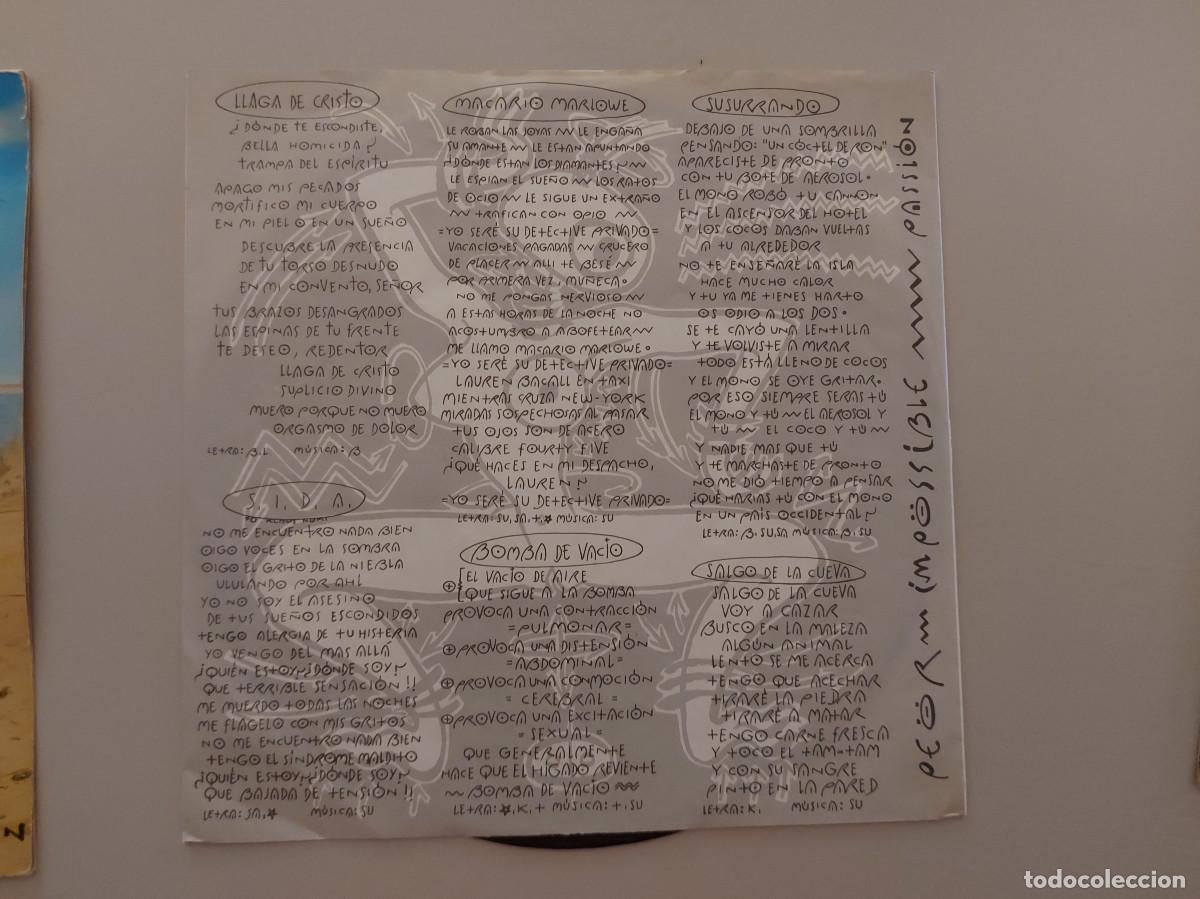 LLAGA DE CRISTO
¿DÓNDE TE ESCONDISTE,
BELLA HOMICIDA?
TRAMPA DEL ESPÍRITU
APAGO MIS PECADOS
MORTIFICO MI CUERPO
EN MI PIEL O EN UN SUEÑO
DESCUBRE LA PRESENCIA
DE TU TORSO DESNUDO
EN MI CONVENTO, SEÑOR
TUS BRAZOS DESANGRADOS
LAS ESPINAS DE TU FRENTE
TE DESEO, REDENTOR
LLAGA DE CRISTO
SUPLICIO DIVINO
MUERO PORQUE NO MUERO
ORGASMO DE DOLOR
LETRA: B.L MÚSICA: B
S.I.D.A.
NO ME ENCUENTRO NADA BIEN
OIGO VOCES EN LA SOMBRA
OIGO EL GRITO DE LA NIEBLA
ULULANDO POR AHÍ
YO NO SOY EL ASESINO
DE TUS SUEÑOS ESCONDIDOS
TENGO ALERGIA DE TU HISTERIA
YO VENGO DEL MAS ALLÁ
¿QUIÉN ESTOY? ¿DÓNDE SOY?
QUE TERRIBLE SENSACIÓN!!
ME MUERDO TODAS LAS NOCHES
ME FLAGELO CON MIS GRITOS
NO ME ENCUENTRO NADA BIEN
TENGO EL SÍNDROME MALDITO
¿QUIÉN ESTOY? ¿DÓNDE SOY?
QUE BAJADA DE TENSIÓN!!
LETRA: SA,★ MÚSICA: SU
MACARIO MARLOWE
LE ROBAN LAS JOYAS ~ LE ENGAÑA
SU AMANTE ~ LE ESTAN APUNTANDO
¿DÓNDE ESTAN LOS DIAMANTES? ~
LE ESPIAN EL SUEÑO ~ LOS RATOS
DE OCIO ~ LE SIGUE UN EXTRAÑO
~ TRAFICAN CON OPIO ~
=YO SERÉ SU DETECTIVE PRIVADO=
VACACIONES PAGADAS ~ CRUCERO
DE PLACER ~ ALLI TE BESÉ ~
POR PRIMERA VEZ, MUÑECA.
NO ME PONGAS NERVIOSO ~
A ESTAS HORAS DE LA NOCHE NO
ACOSTUMBRO A ABOFETEAR ~
ME LLAMO MACARIO MARLOWE.
=YO SERÉ SU DETECTIVE PRIVADO=
LAUREN BACALL EN TAXI
MIENTRAS CRUZA NEW-YORK
MIRADAS SOSPECHOSAS AL PASAR
TUS OJOS SON DE ACERO
CALIBRE FOURTY FIVE
¿QUÉ HACES EN MI DESPACHO,
LAUREN?
=YO SERÉ SU DETECTIVE PRIVADO=
LETRA: SU, SA, +,★ MÚSICA: SU
BOMBA DE VACÍO
EL VACÍO DE AIRE
⊕ QUE SIGUE A LA BOMBA
PROVOCA UNA CONTRACCIÓN
=PULMONAR=
⊕PROVOCA UNA DISTENSIÓN
=ABDOMINAL=
⊕PROVOCA UNA CONMOCIÓN
=CEREBRAL=
⊕PROVOCA UNA EXCITACIÓN
=SEXUAL=
QUE GENERALMENTE
HACE QUE EL HÍGADO REVIENTE
~ BOMBA DE VACÍO ~
LETRA: ★, K, + MÚSICA: +, SU
SUSURRANDO
DEBAJO DE UNA SOMBRILLA
PENSANDO: "UN CÓCTEL DE RON"
APARECISTE DE PRONTO
CON TU BOTE DE AEROSOL.
EL MONO ROBÓ TU CANNON
EN EL ASCENSOR DEL HOTEL
Y LOS COCOS DABAN VUELTAS
A TU ALREDEDOR
NO TE ENSEÑARÉ LA ISLA
HACE MUCHO CALOR
Y TU YA ME TIENES HARTO
OS ODIO A LOS DOS.
SE TE CAYÓ UNA LENTILLA
Y TE VOLVISTE A MIRAR
TODO ESTÁ LLENO DE COCOS
Y EL MONO SE OYE GRITAR.
POR ESO SIEMPRE SERAS TÚ
EL MONO Y TÚ ~ EL AEROSOL Y
TÚ ~ EL COCO Y TÚ ~
Y NADIE MAS QUE TÚ
Y TE MARCHASTE DE PRONTO
NO ME DIÓ TIEMPO A PENSAR
¿QUÉ HARIAS TÚ CON EL MONO
EN UN PAIS OCCIDENTAL?
LETRA: B, SU, SA MÚSICA: B, SU
SALGO DE LA CUEVA
SALGO DE LA CUEVA
VOY A CAZAR
BUSCO EN LA MALEZA
ALGÚN ANIMAL
LENTO SE ME ACERCA
TENGO QUE ACECHAR
TIRARÉ LA PIEDRA
TIRARÉ A MATAR
TENGO CARNE FRESCA
Y TOCO EL TAM=TAM
Y CON SU SANGRE
PINTO EN LA PARED
LETRA: K. MÚSICA: SU
PEOR ~ IMPÖSSIBLE ~ PASSIÓN
Z
todocoleccion